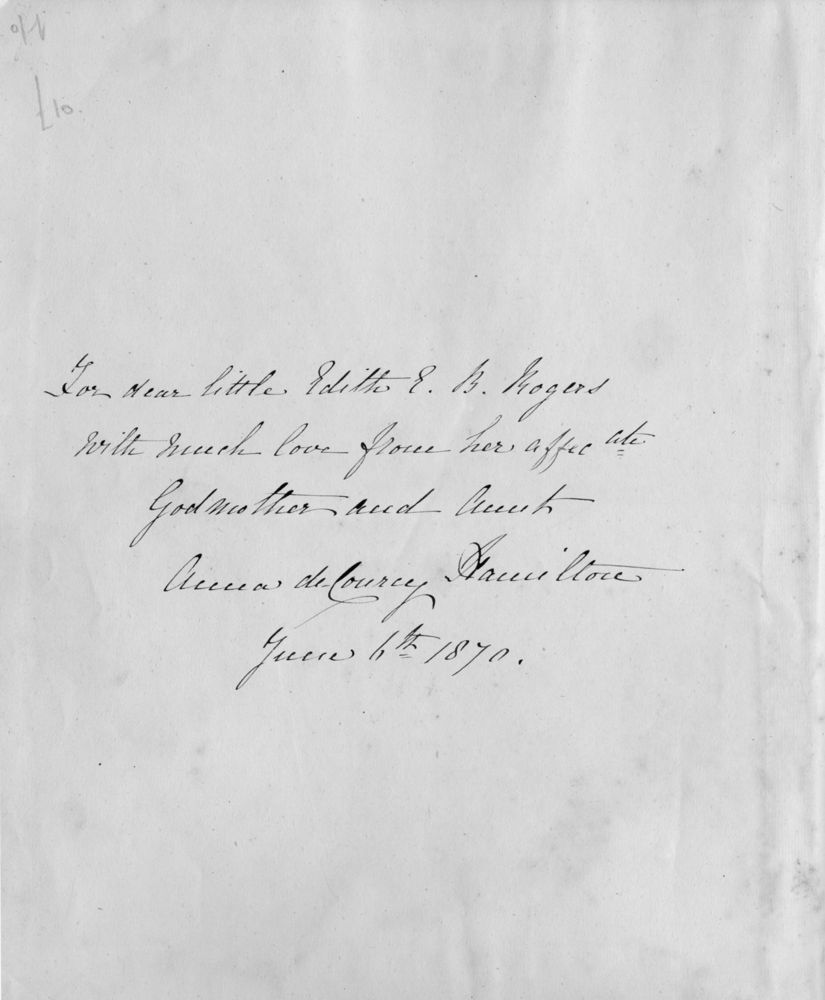 £10.
For dear little Edith E. B. Rogers
With much love from her affecate
Godmother and Aunt
Anna deCourcy Hamilton
June 6th 1870.